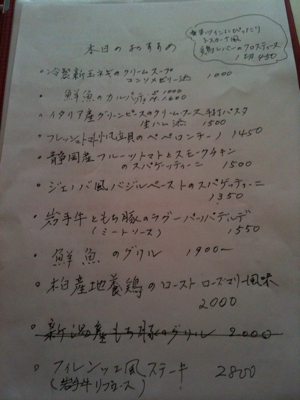 本日のおすすめ
赤ワインにぴったり
トスカーナ風
鶏レバーのクロスティーニ
1コ 450
・冷製新玉ネギのクリームスープ
コンソメゼリー添え 1000
・鮮魚のカルパッチョ
1600
・イタリア産グリーンピースのクリームソース手打パスタ
生ハム添 1500
のペペロンチーノ 1450
・静岡産フルーツトマトとスモークチキン
のスパゲッティーニ 1500
・ジェノバ風バジルペーストのスパゲッティーニ
1350
・岩手牛ともち豚のラグー パッパルデッレ
(ミートソース) 1550
・鮮魚のグリル 1900
産地養鶏のロースト ローズマリー風味
2000
・新潟産もち豚のグリル 2000
・フィレンツェ風ステーキ 2800